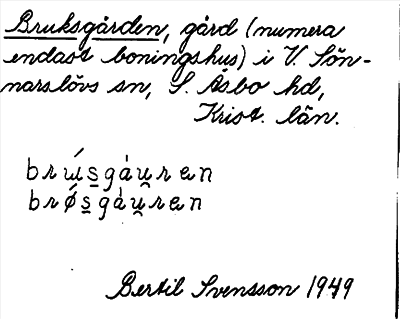 Bruksgården, gård (numera
endast boningshus) i V. Sön-
narslövs sn, S. Åsbo hd,
Krist. län.
brɯ́s̲gȧu̯ren
brǿs̲gȧu̯ren
Bertil Svensson 1949